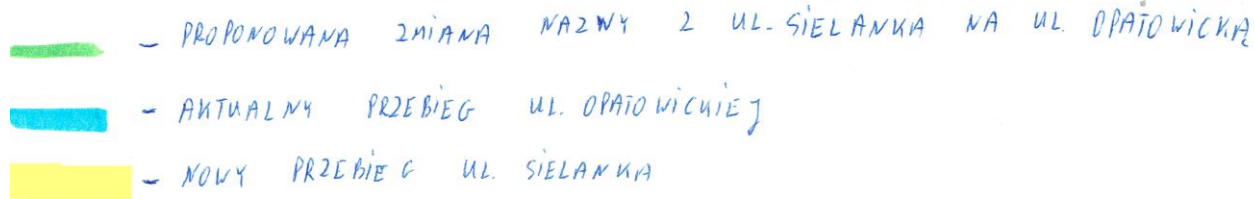 - PROPONOWANA ZMIANA NAZWY Z UL. SIELANKA NA UL. OPATOWICKĄ
- AKTUALNY PRZEBIEG UL. OPATOWICKIEJ
- NOWY PRZEBIEG UL. SIELANKA